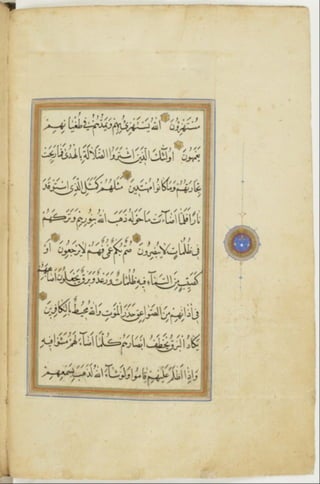 مُسْتَهْزِؤُنَ اللّٰهُ يَسْتَهْزِئُ بِهِمْ وَيَمُدُّهُمْ فِي طُغْيَانِهِمْ
يَعْمَهُونَ اُولٰئِكَ الَّذِينَ اشْتَرَوُا الضَّلَالَةَ بِالْهُدٰى فَمَا رَبِحَتْ
تِجَارَتُهُمْ وَمَا كَانُوا مُهْتَدِينَ مَثَلُهُمْ كَمَثَلِ الَّذِي اسْتَوْقَدَ
نَارًا فَلَمَّا اَضَاءَتْ مَا حَوْلَهُ ذَهَبَ اللّٰهُ بِنُورِهِمْ وَتَرَكَهُمْ
فِي ظُلُمَاتٍ لَا يُبْصِرُونَ صُمٌّ بُكْمٌ عُمْيٌ فَهُمْ لَا يَرْجِعُونَ اَوْ
كَصَيِّبٍ مِنَ السَّمَاءِ فِيهِ ظُلُمَاتٌ وَرَعْدٌ وَبَرْقٌ يَجْعَلُونَ اَصَابِعَهُمْ
فِي اٰذَانِهِمْ مِنَ الصَّوَاعِقِ حَذَرَ الْمَوْتِ وَاللّٰهُ مُحِيطٌ بِالْكَافِرِينَ
يَكَادُ الْبَرْقُ يَخْطَفُ اَبْصَارَهُمْ كُلَّمَا اَضَاءَ لَهُمْ مَشَوْا فِيهِ
وَاِذَا اَظْلَمَ عَلَيْهِمْ قَامُوا وَلَوْ شَاءَ اللّٰهُ لَذَهَبَ بِسَمْعِهِمْ